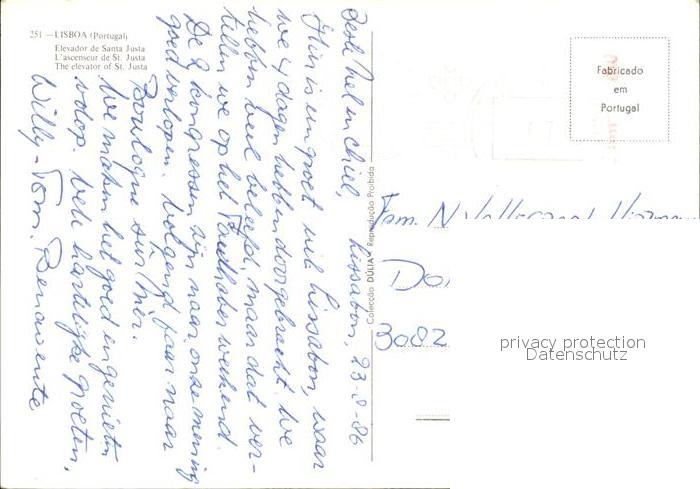 251 — LISBOA (Portugal)
Elevador de Santa Justa
L'ascenseur de St. Justa
The elevator of St. Justa
Lissabon, 23-8-86
Beste Nel en Chiel,
Hier is een groet uit Lissabon, waar
we 4 dagen hebben doorgebracht. We
hebben veel beleefd, maar dat ver-
tellen we op het weekend.
De 2 kongressen zijn naar onze mening
goed verlopen. Volgend jaar naar
Boulogne sur Mer.
We maken het goed en genieten
volop. Vele hartelijke groeten,
Willy - Tom. Benavente
Colecção DÚLIA Reprodução Proibida
Fabricado
em
Portugal
Fam. N.
3082
privacy protection
Datenschutz